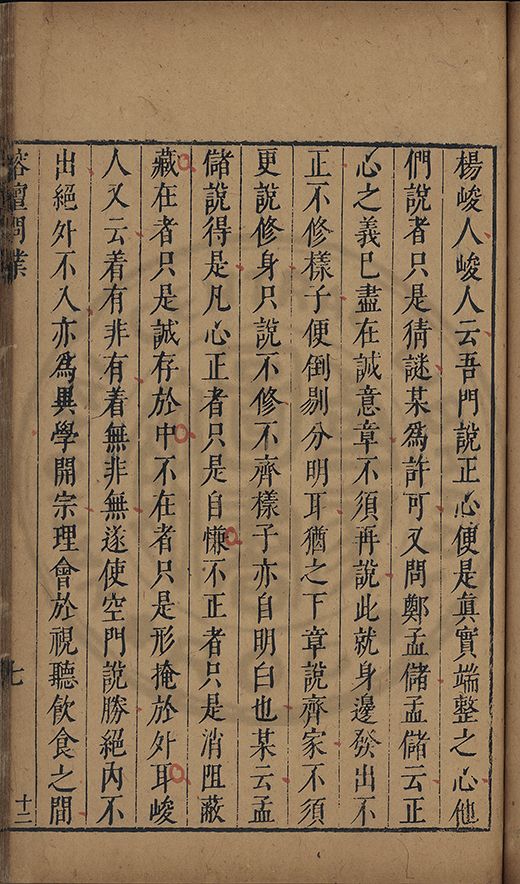 楊峻人峻人云吾門說正心便是眞實端整之心他
們說者只是猜謎某爲許可又問鄭孟儲孟儲云正
心之義已盡在誠意章不須再說此就身邊發出不
正不修樣子便倒剔分明耳猶之下章說齊家不須
更說修身只說不修不齊樣子亦自明白也某云孟
儲說得是凡心正者只是自慊不正者只是消阻蔽
藏在者只是誠存於中不在者只是形掩於外耳峻
人又云着有非有着無非無遂使空門說勝絕內不
出絕外不入亦爲異學開宗理會於視聽飲食之間
榕壇問業
七
十二